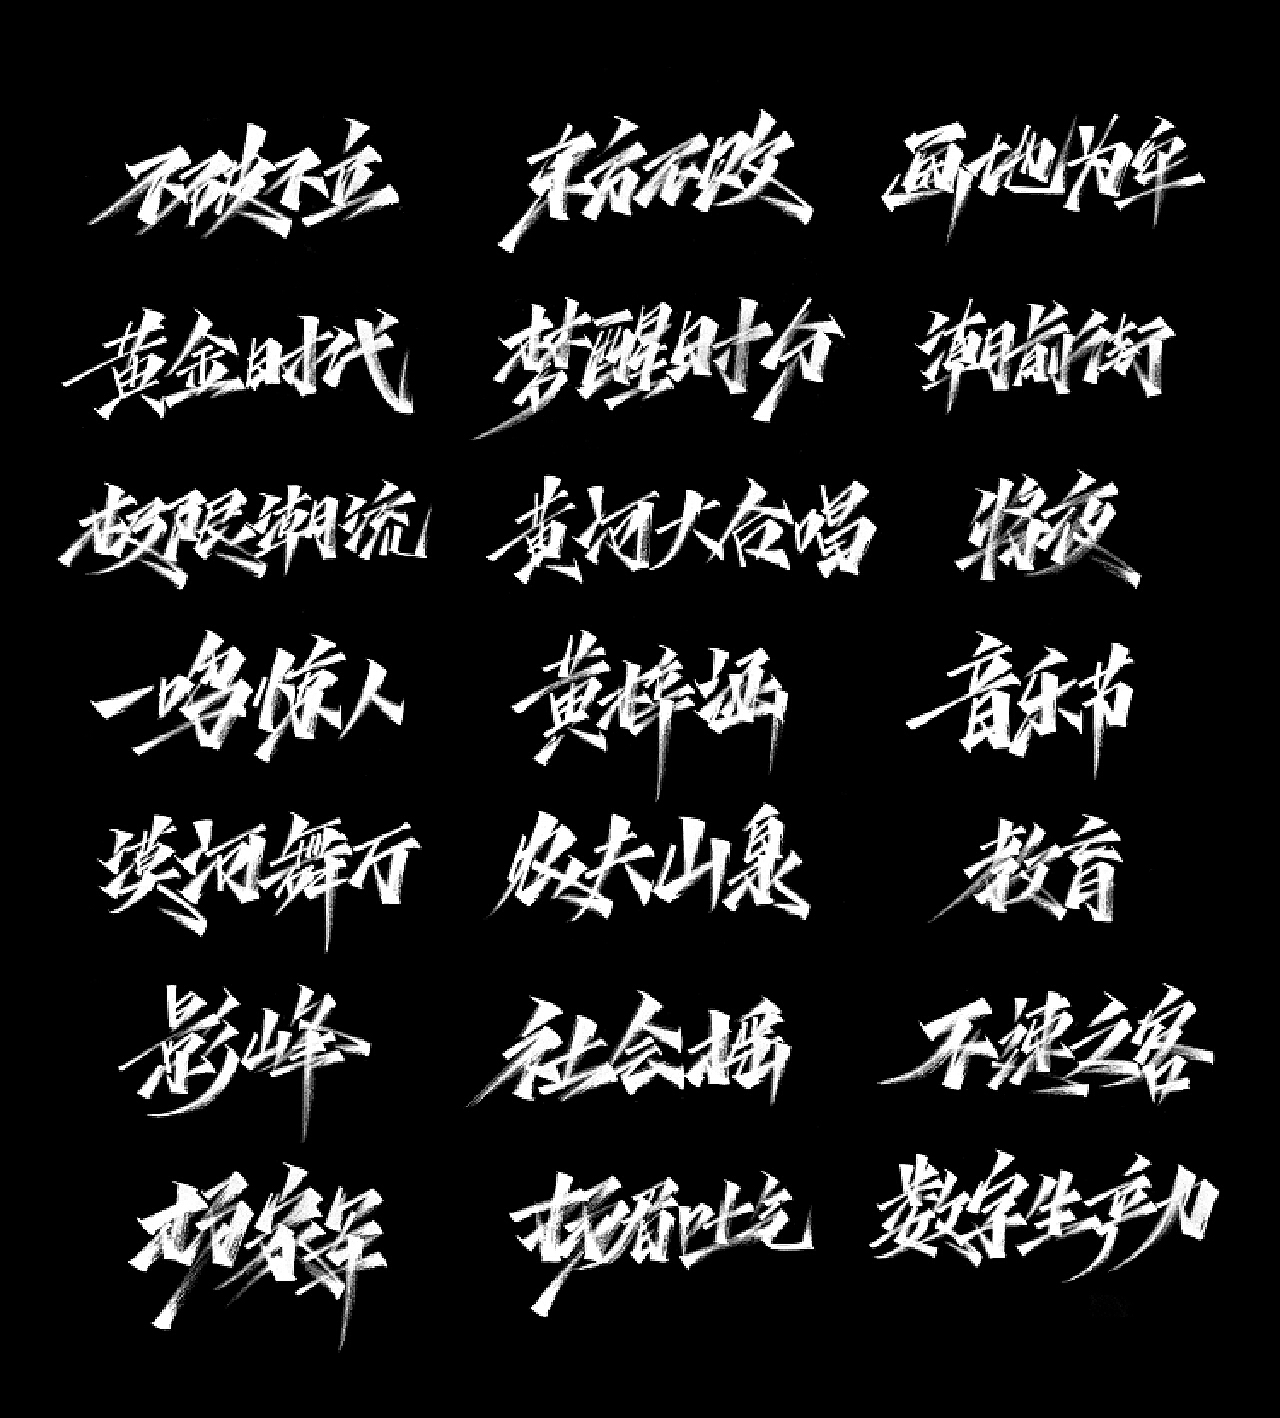 不破不立 东方不败 画地为牢
黄金时代 梦醒时分 潮前街
极限潮流 黄河大合唱 将夜
一鸣惊人 黄梓涵 音乐节
漠河舞厅 农夫山泉 教育
影峰 社会摇 不速之客
杨家军 扬眉吐气 数字生产力